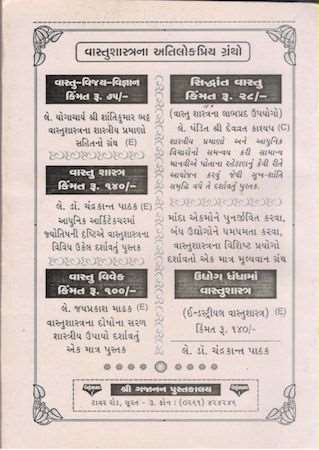 વાસ્તુશાસ્ત્રના અતિલોકપ્રિય ગ્રંથો
વાસ્તુ-વિજય-વિજ્ઞાન
કિંમત રૂ. ૭૫/-
લે. યોગાચાર્ય શ્રી શાંતિકુમાર ભટ્ટ
વાસ્તુશાસ્ત્રના શાસ્ત્રીય પ્રમાણો
સહિતનો ગ્રંથ (E)
વાસ્તુ શાસ્ત્ર
કિંમત રૂ. ૧૪૦/-
લે. ડૉ. ચંદ્રકાન્ત પાઠક (E)
આધુનિક આર્કિટેક્ચરમાં
જ્યોતિષની દૃષ્ટિએ વાસ્તુશાસ્ત્રના
વિવિધ ઉકેલ દર્શાવતું પુસ્તક
વાસ્તુ વિવેક
કિંમત રૂ. ૧૦૦/-
લે. જયપ્રકાશ માઢક (E)
વાસ્તુશાસ્ત્રના દોષોના સરળ
શાસ્ત્રીય ઉપાયો દર્શાવતું
એક માત્ર પુસ્તક
સિદ્ધાંત વાસ્તુ
કિંમત રૂ. ૨૮/-
(વાસ્તુ શાસ્ત્રના લાભપ્રદ ઉપયોગો)
લે. પંડિત શ્રી દેવવ્રત કાશ્યપ (C)
શાસ્ત્રીય પ્રમાણો અને આધુનિક
વિચારોનો સમન્વય કરી સામાન્ય
માનવીએ પોતાના રહેઠાણનું કેવી રીતે
આયોજન કરવું જેથી સુખ-શાંતિ
સમૃદ્ધિ વધે તે દર્શાવતું પુસ્તક.
માંદા એકમોને પુનર્જીવિત કરવા,
બંધ ઉદ્યોગોને ધમધમતા કરવા,
વાસ્તુશાસ્ત્રના વિશિષ્ટ પ્રયોગો
દર્શાવતો એક માત્ર મુલ્યવાન ગ્રંથ
ઉદ્યોગ ધંધામાં
વાસ્તુશાસ્ત્ર
(ઈન્ડસ્ટ્રીયલ વાસ્તુશાસ્ત્ર) (E)
કિંમત રૂ. ૧૪૦/-
લે. ડૉ. ચંદ્રકાન્ત પાઠક
શ્રી ગજાનન પુસ્તકાલય
ટાવર રોડ, સુરત - ૩. ફોન : (૦૨૬૧) ૪૨૪૨૪૬